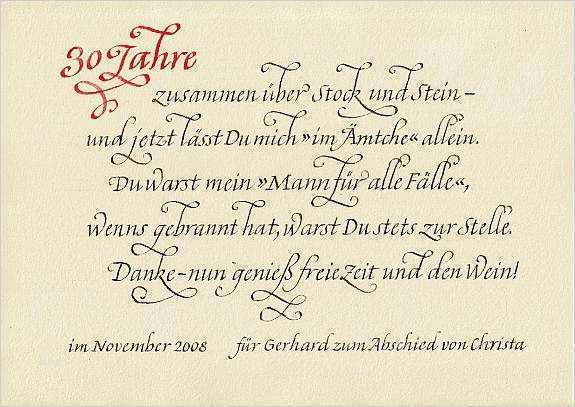 30 Jahre
zusammen über Stock und Stein –
und jetzt lässt Du mich »im Ämtche« allein.
Du warst mein »Mann für alle Fälle«,
wenns gebrannt hat, warst Du stets zur Stelle.
Danke – nun genieß freie Zeit und den Wein!
im November 2008 für Gerhard zum Abschied von Christa